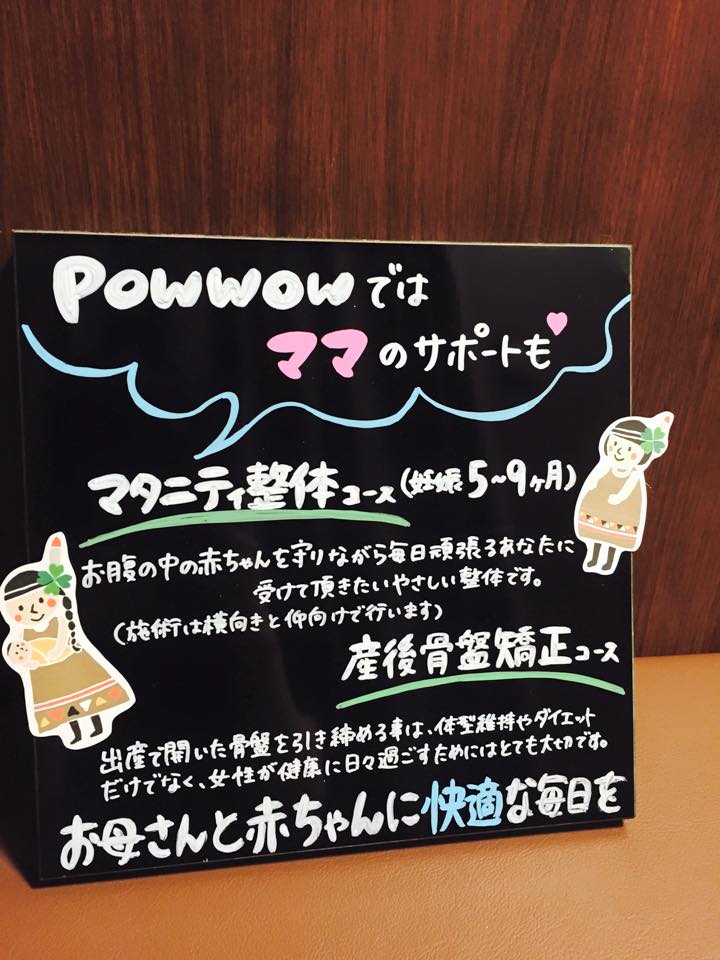 POWWOWでは
ママのサポートも
マタニティ整体コース(妊娠5〜9ヶ月)
お腹の中の赤ちゃんを守りながら毎日頑張るあなたに
受けて頂きたいやさしい整体です。
(施術は横向きと仰向けで行います)
産後骨盤矯正コース
出産で開いた骨盤を引き締める事は、体型維持やダイエット
だけでなく、女性が健康に日々過ごすためにはとても大切です。
お母さんと赤ちゃんに快適な毎日を